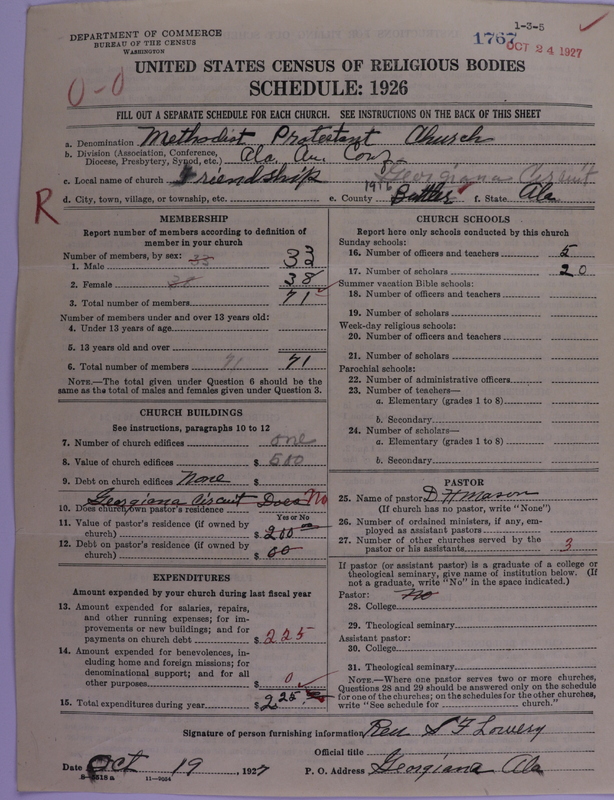 1-3-5
DEPARTMENT OF COMMERCE
BUREAU OF THE CENSUS
WASHINGTON
1767 OCT 24 1927
UNITED STATES CENSUS OF RELIGIOUS BODIES
SCHEDULE: 1926
0-0
FILL OUT A SEPARATE SCHEDULE FOR EACH CHURCH. SEE INSTRUCTIONS ON THE BACK OF THIS SHEET
a. Denomination Methodist Protestant Church
b. Division (Association, Conference, Diocese, Presbytery, Synod, etc.) Ala. An. Conf.
c. Local name of church Friendship Georgiana Circuit
R
d. City, town, village, or township, etc. e. County Butler f. State Ala
MEMBERSHIP
Report number of members according to definition of
member in your church
Number of members, by sex: 33
1. Male 33
2. Female 38 38
3. Total number of members 71
Number of members under and over 13 years old:
4. Under 13 years of age
5. 13 years old and over
6. Total number of members 71 71
NOTE.—The total given under Question 6 should be
same as the total of males and females given under Question 3.
CHURCH BUILDINGS
See instructions, paragraphs 10 to 12
7. Number of church edifices one
8. Value of church edifices $ 500
9. Debt on church edifices None $
Georgiana Circuit Does No
10. Does church own pastor's residence
Yes or No
11. Value of pastor's residence (if owned by
church) $ 200
12. Debt on pastor's residence (if owned by
church) $ 00
EXPENDITURES
Amount expended by your church during last fiscal year
13. Amount expended for salaries, repairs,
and other running expenses; for im-
provements or new buildings; and for
payments on church debt $ 225
14. Amount expended for benevolences, in-
cluding home and foreign missions; for
denominational support; and for all
other purposes $ 0
15. Total expenditures during year $ 225
CHURCH SCHOOLS
Report here only schools conducted by this church
Sunday schools:
16. Number of officers and teachers 5
17. Number of scholars 20
Summer vacation Bible schools:
18. Number of officers and teachers
19. Number of scholars
Week-day religious schools:
20. Number of officers and teachers
21. Number of scholars
Parochial schools:
22. Number of administrative officers
23. Number of teachers—
a. Elementary (grades 1 to 8)
b. Secondary
24. Number of scholars—
a. Elementary (grades 1 to 8)
b. Secondary
PASTOR
25. Name of pastor D. H. Mason
(If church has no pastor, write "None")
26. Number of ordained ministers, if any, em-
ployed as assistant pastors
27. Number of other churches served by the
pastor or his assistants 3
If pastor (or assistant pastor) is a graduate of a college or
theological seminary, give name of institution below. (If
not a graduate, write "No" in the space indicated.)
Pastor: No
28. College
29. Theological seminary
Assistant pastor:
30. College
31. Theological seminary
NOTE.—Where one pastor serves two or more churches,
Questions 28 and 29 should be answered only on the schedule
for one of the churches; on the schedules for the other churches,
write "See schedule for church."
Signature of person furnishing information Rev S F Lowery
Official title
Date Oct 19, 1927 P. O. Address Georgiana Ala
8-5518 a 11-9654